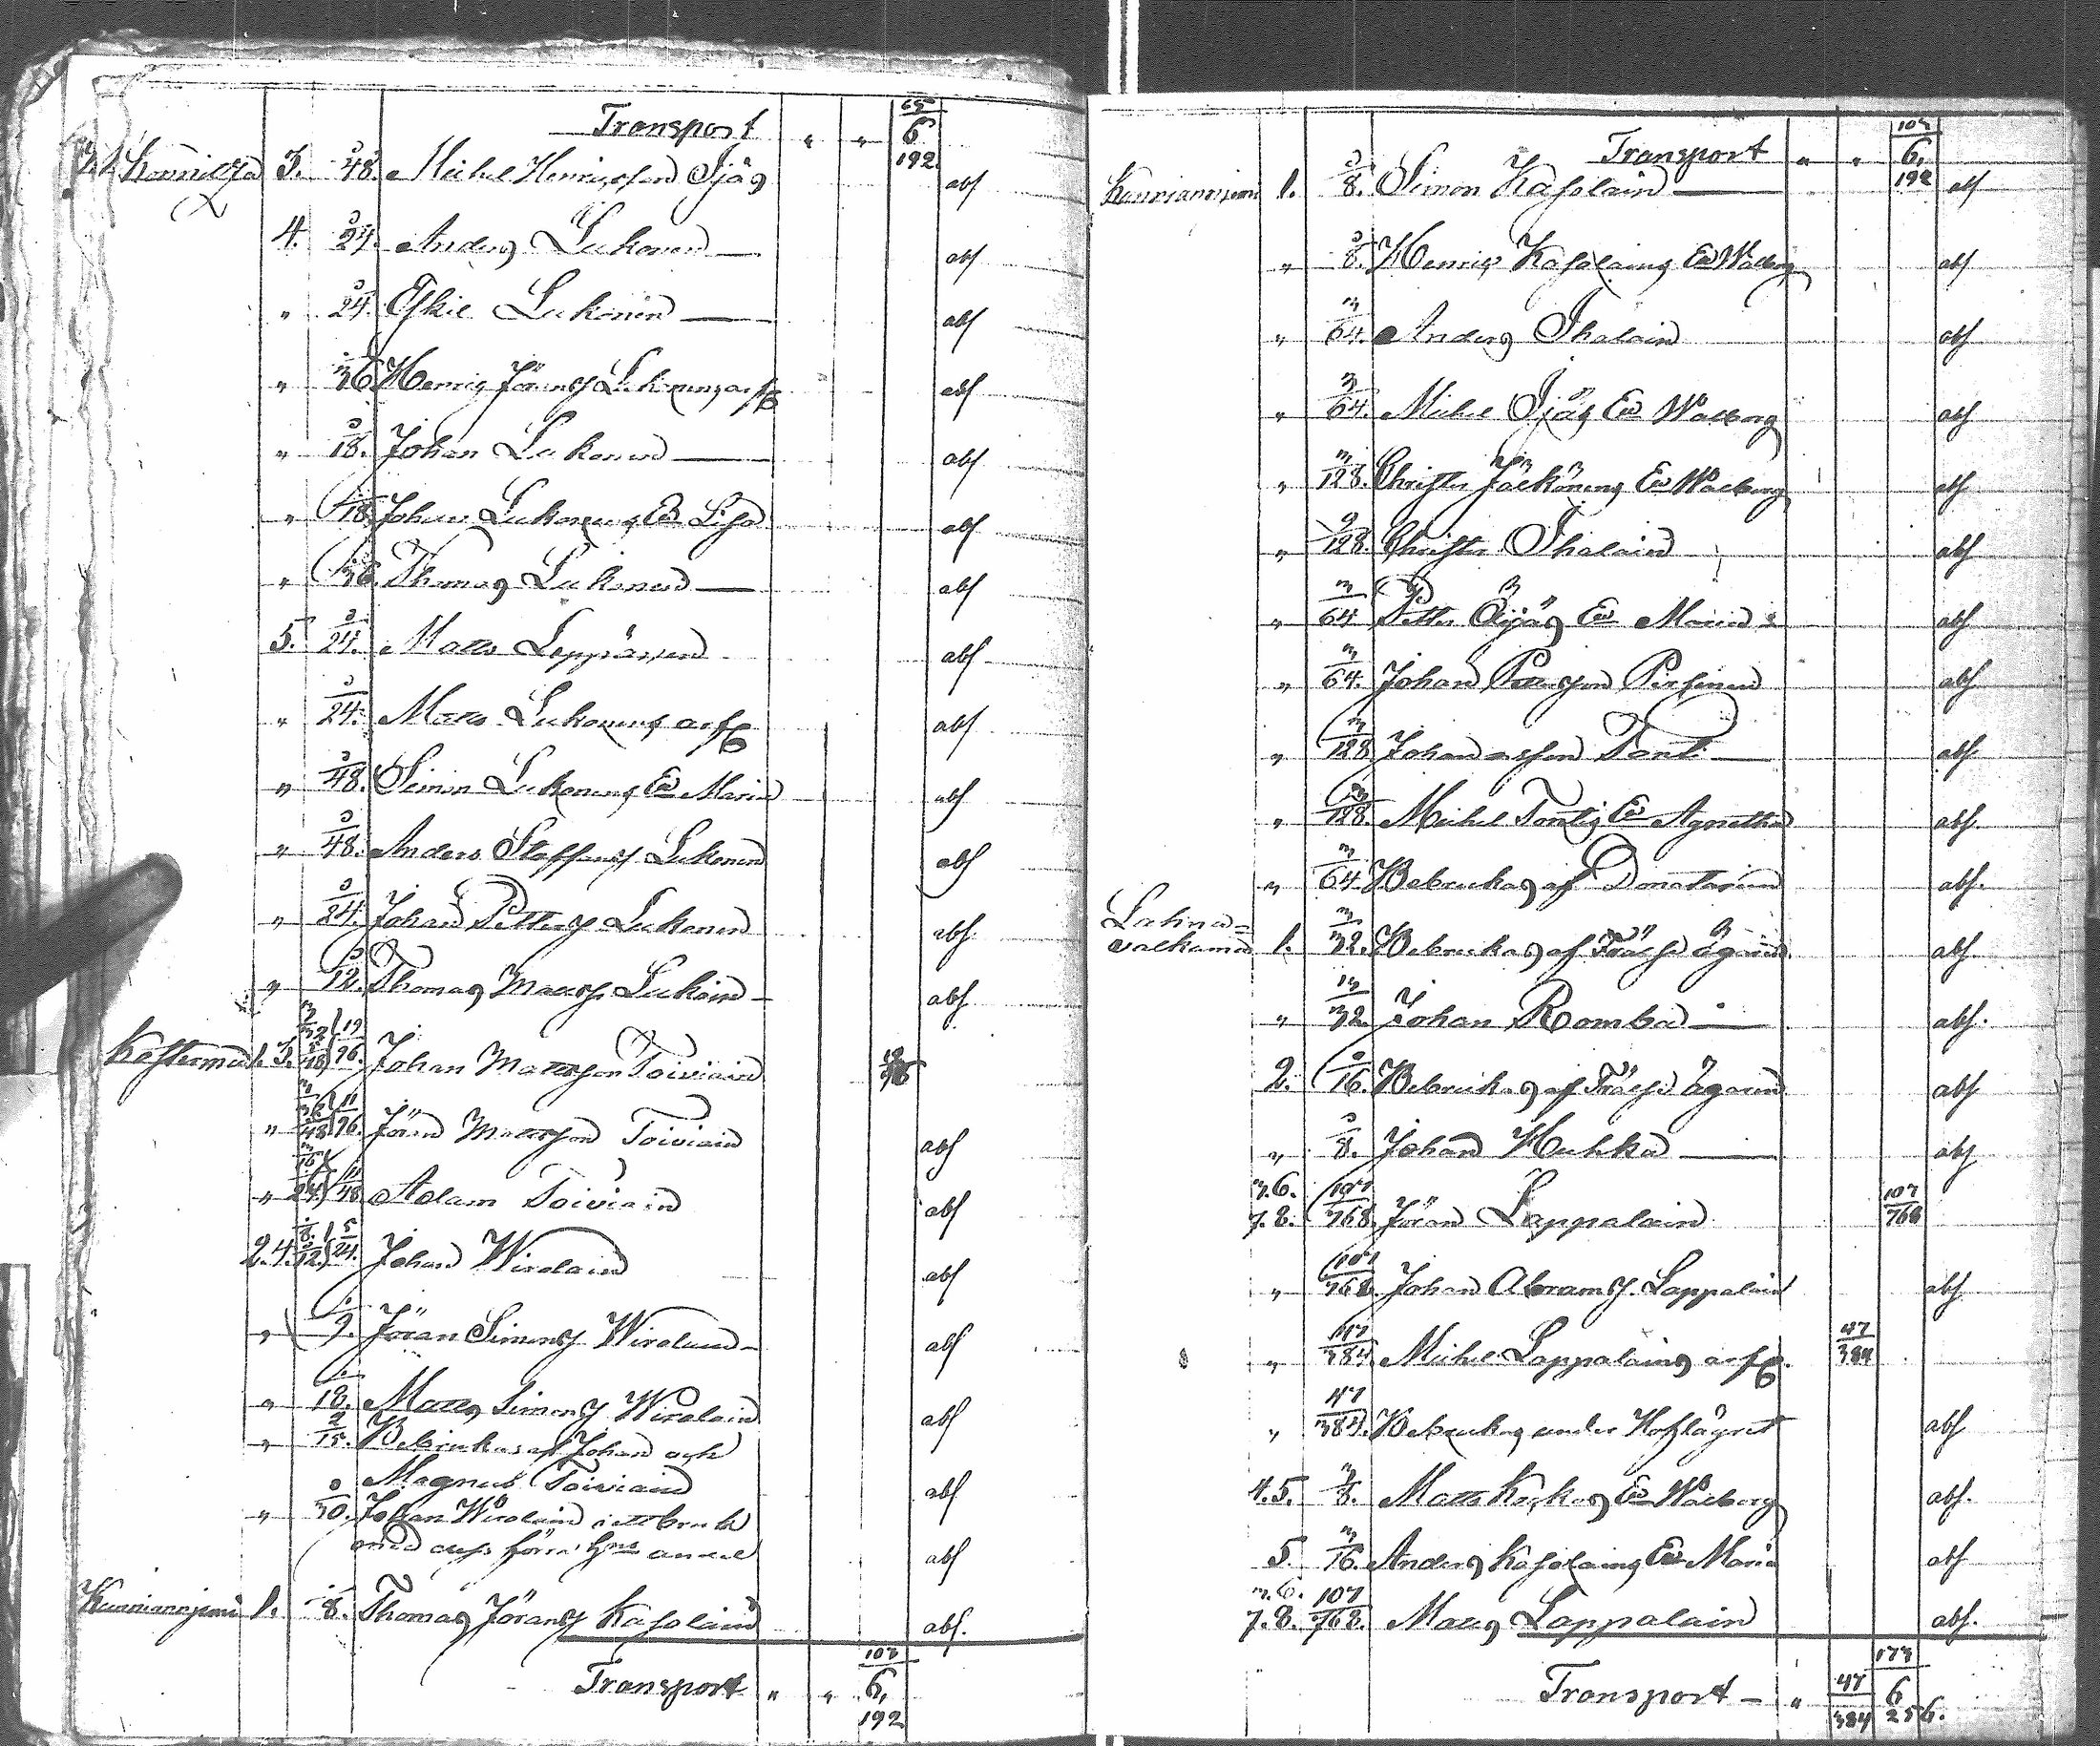 Transport " " 65
6
192
3. 48. Michel Henricsson Äijäs abs
4. 24. Anders Lukonen — abs
" 24. Eskil Lukonen — abs
" 36. Henric Jöranss Lukonens arfg abs
" 18. Johan Lukonen — abs
" 18. Johan Lukonens Ea Lisa abs
" 36. Thomas Lukonen — abs
5. 24. Matts Leppänen abs
" 24. Matts Lukonens arfg abs
" 48. Simon Lukonens Ea Maria abs
" 48. Anders Staffanss Lukonen abs
" 24. Johan Petterss Lukonen abs
" 12. Thomas Matss Lukoin — abs
1. 3. 19
96. Johan Mattsson Toiviain 19
96
" 11
96. Jöran Mattsson Toiviain abs
" 11
48 Adam Toiviain abs
2. 4. 5
24. Johan Wirolain abs
" 9. Jöran Simonss Wirolain — abs
" 18. Matts Simonss Wirolain abs
" 2
15. Bebrukas af Johan och
Magnus Toiviain abs
" 30. Johan Wirolain
abs
Kunnianniemi 1. 8. Thomas Jöranss Kasolain abs.
Transport " " 103
6,
192
Transport " " 103
6,
192
Kunnianniemi 1. 8. Simon Kasolain — abs
" 8. Henrics Kasolains Ea Walborg abs
" 3
64. Anders Ihalain abs
" 3
64. Michel Äijäs Ea Walborg abs
" 3
128. Christer Jääskönens Ea Walborg abs
" 9
128. Christer Ihalain abs
" 3
64 Petter Äijäs Ea Maria abs
" 3
64. Johan Pettersson Pirhonen abs
" 3
128 Johansson Tonti — abs
" 3
128. Michel Tontis Ea Agnetha abs.
" 3
64 Bebrukas af Donatarien abs.
Lahna=
valkama 1. 3
32. Bebrukas af Frälse ägaren abs.
" 13
32 Johan Romba — abs.
2. 16. Bebrukas af Frälse ägaren abs
" 8. Johan Huhka — abs
3. 6.
7. 8. 107
768 Jöran Lappalain 107
768
" 107
768. Johan Abramss. Lappalain abs
" 47
384 Michel Lappalains arfg. 47
384
" 47
384. Bebrukas under Hofslägret abs
4. 5. 3
8. Matts Ea Walborg abs.
5. 3
16. Anders Kasolains Ea Maria abs
3. 6.
7. 8. 107
768. Matts Lappalain abs.
Transport — " 47
384 173
6
256.